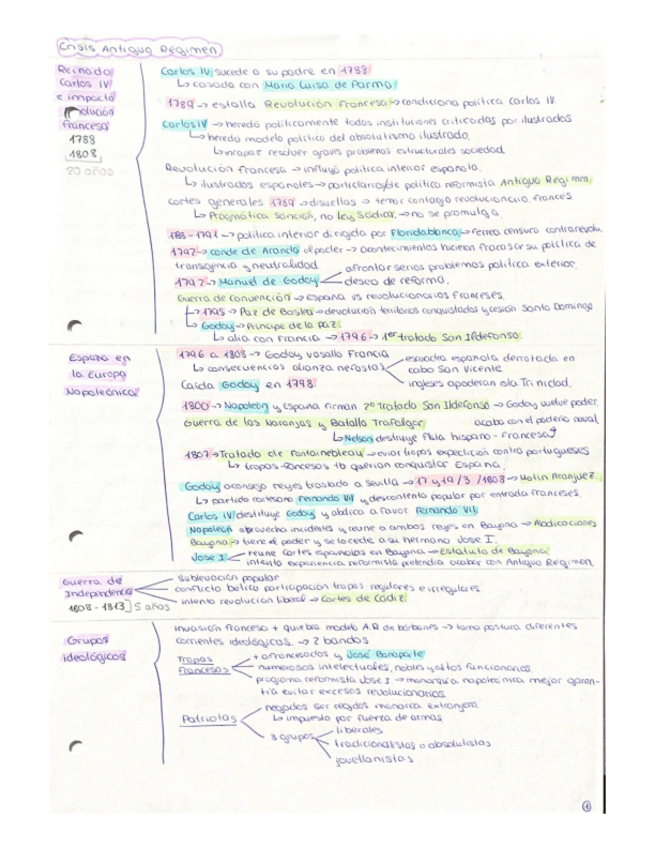 Crisis Antiguo Régimen
Reinado
Carlos IV
e impacto
olución
francesa
1788
1808
20 años
Carlos IV sucede a su padre en 1788
↳ casado con María Luisa de Parma
1789 → estalla Revolución Francesa → condiciona política Carlos IV
Carlos IV → heredó políticamente todas instituciones criticadas por ilustrados
↳ heredó modelo político del absolutismo ilustrado.
↳ incapaz resolver graves problemas estructurales sociedad.
Revolución francesa → influyó política interior española.
↳ ilustrados españoles → política reformista Antiguo Régimen.
cortes generales 1789 → disueltas → temor contagio revolucionario francés
↳ Pragmática Sanción, no ley Sálica. → no se promulga.
1791 → política interior dirigida por Floridablanca → férrea censura contrarevolu.
1792 → conde de Aranda al poder → acontecimientos hicieron fracasar su política de
transigencia y neutralidad.
1792 → Manuel de Godoy
afrontar serios problemas política exterior.
deseo de reforma.
Guerra de Convención → España vs revolucionarios franceses.
↳ 1795 → Paz de Basilea → devolución territorios conquistados y cesión Santo Domingo
↳ Godoy → Príncipe de la Paz.
↳ alía con Francia → 1796 → 1er tratado San Ildefonso.
España en
la Europa
Napoleónica
1796 a 1808 → Godoy vasallo Francia
↳ consecuencias alianza nefastas
escuadra española derrotada en
cabo San Vicente
ingleses apoderan isla Trinidad.
Caída Godoy en 1798.
1800 → Napoleón y España firman 2º tratado San Ildefonso → Godoy vuelve poder.
Guerra de las Naranjas y Batalla Trafalgar
acaba con el poderío naval
↳ Nelson destruye flota hispano-francesa
1807 → Tratado de Fontainebleau → enviar tropas expedición contra portugueses
↳ tropas francesas tb querían conquistar España.
Godoy aconseja reyes traslado a Sevilla → 17 y 19 / 3 / 1808 → Motín Aranjuez.
↳ partido cortesano Fernando VII y descontento popular por entrada franceses.
Carlos IV destituye Godoy y abdica a favor Fernando VII.
Napoleón aprovecha incidentes y reúne a ambos reyes en Bayona → Abdicaciones
Bayona → tiene el poder y se lo cede a su hermano Jose I.
Jose I
reúne Cortes españolas en Bayona → Estatuto de Bayona
intento experiencia reformista pretendía acabar con Antiguo Régimen
Guerra de
Independencia
1808 - 1813 ] 5 años
sublevación popular
conflicto bélico participación tropas regulares e irregulares.
intento revolución liberal → Cortes de Cádiz.
Grupos
ideológicos
invasión francesa + quiebra modelo A.R de borbones → toma postura diferentes
corrientes ideológicas. → 2 bandos
Tropas
francesas
+ afrancesados y José Bonaparte
numerosos intelectuales, nobles y altos funcionarios.
programa reformista Jose I → monarquía napoleónica mejor garan-
tía evitar excesos revolucionarios.
Patriotas
negados ser regidos monarca extranjero
↳ impuesto por fuerza de armas
3 grupos
liberales
tradicionalistas o absolutistas
jovellanistas
1